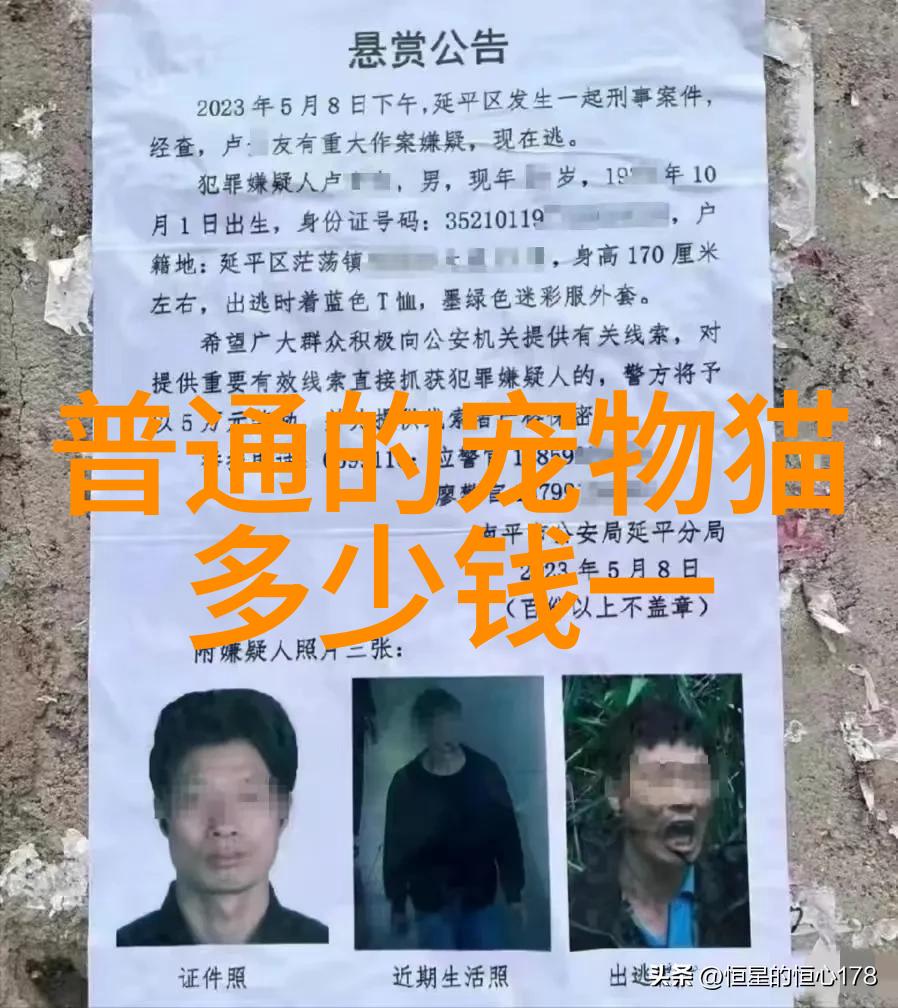 悬赏公告
2023年5月8日下午,延平区发生一起刑事案件,
经查,卢 友有重大作案嫌疑,现在逃。
犯罪嫌疑人卢 ,男,现年 岁,19 年10
月1日出生,身份证号码:35210119 ,户
籍地:延平区茫荡镇 ,身高170厘米
左右,出逃时着蓝色T恤,墨绿色迷彩服外套。
希望广大群众积极向公安机关提供有关线索,对
提供重要有效线索直接抓获犯罪嫌疑人的,警方将予
以5万元
普通的宠物猫
廖警官
多少钱一
公安局延平分局
2023年5月8日
(百份以上不盖章)
附嫌疑人照片三张:
证件照
近期生活照
出逃
头条 @恒星的恒心178